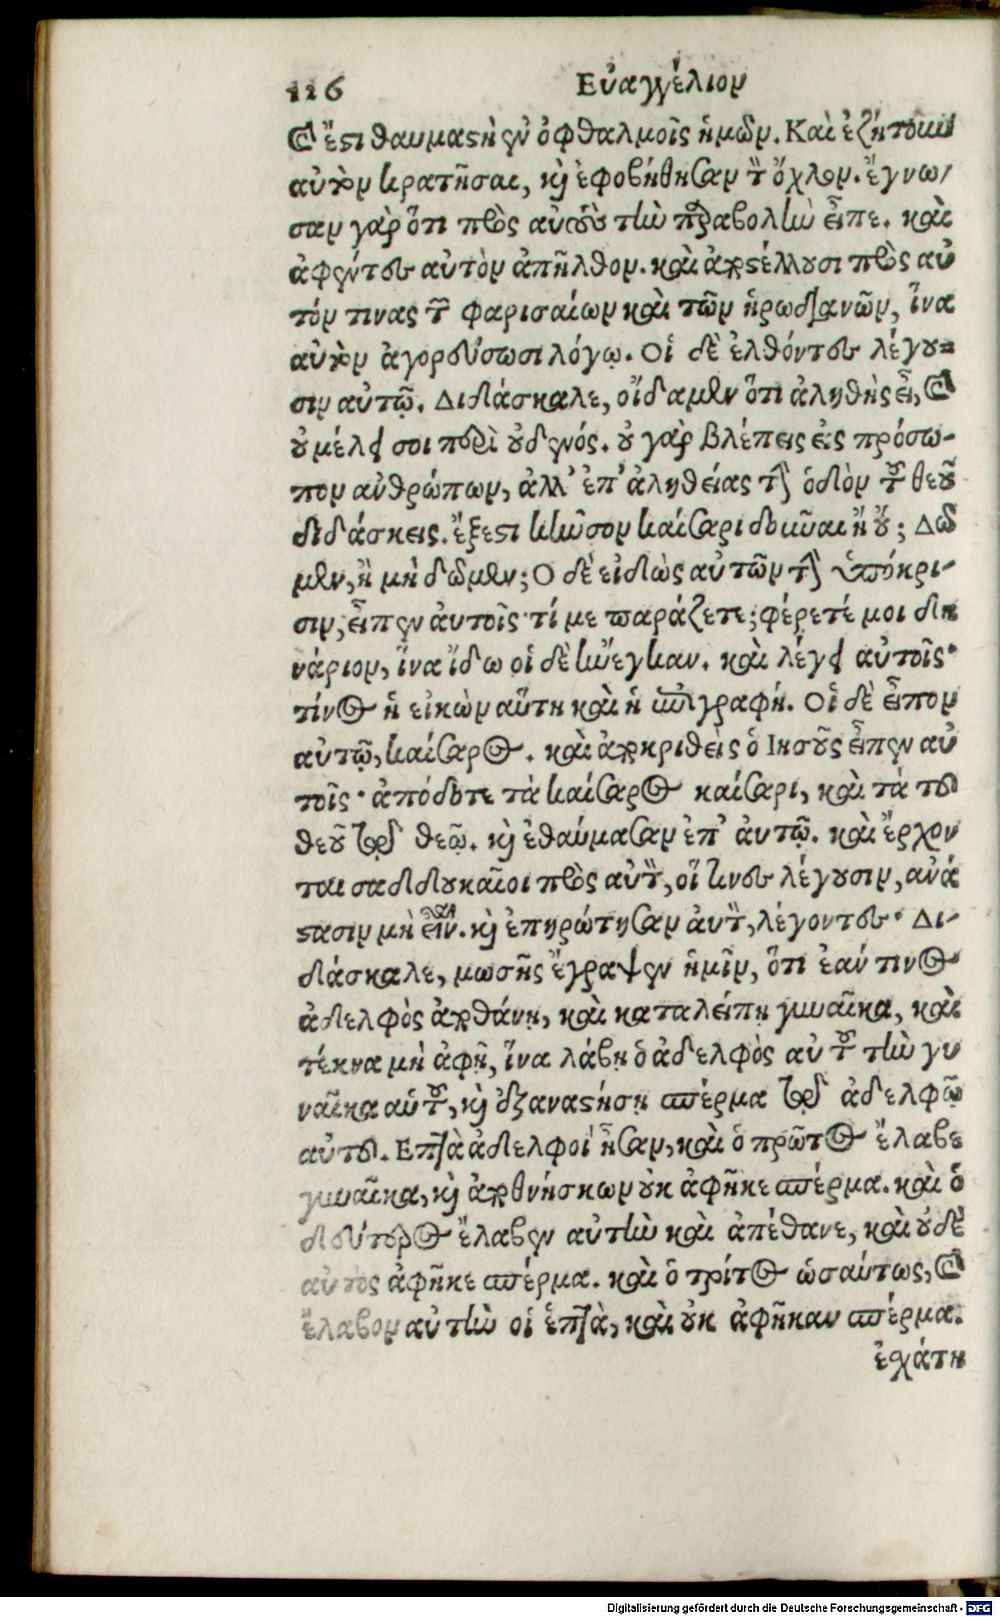 116 Εὐαγγέλιον
καὶ ἔστι θαυμαστὴ ἐν ὀφθαλμοῖς ἡμῶν. Καὶ ἐζήτουν
αὐτὸν κρατῆσαι, καὶ ἐφοβήθησαν τὸν ὄχλον. ἔγνω/
σαν γὰρ ὅτι πρὸς αὐτοὺς τὴν παραβολὴν εἶπε. καὶ
ἀφέντες αὐτὸν ἀπῆλθον. καὶ ἀποστέλλουσι πρὸς αὐ
τόν τινας τῶν φαρισαίων καὶ τῶν ἡρωδιανῶν, ἵνα
αὐτὸν ἀγρεύσωσι λόγῳ. Οἱ δὲ ἐλθόντες λέγου=
σιν αὐτῷ. Διδάσκαλε, οἴδαμεν ὅτι ἀληθὴς εἶ, καὶ
οὐ μέλει σοι περὶ οὐδενός. οὐ γὰρ βλέπεις εἰς πρόσω-
πον ἀνθρώπων, ἀλλ' ἐπ' ἀληθείας τὴν ὁδὸν τοῦ θεοῦ
διδάσκεις. ἔξεστι κῆνσον καίσαρι δοῦναι ἢ οὔ; Δῶ
μεν, ἢ μὴ δῶμεν; Ὁ δὲ εἰδὼς αὐτῶν τὴν ὑπόκρι-
σιν, εἶπεν ἀυτοῖς· τί με πειράζετε; φέρετέ μοι δη
νάριον, ἵνα ἴδω οἱ δὲ ἤνεγκαν. καὶ λέγει αὐτοῖς·
τίνος ἡ εἰκὼν αὕτη καὶ ἡ ἐπιγραφή. Οἱ δὲ εἶπον
αὐτῷ, καίσαρος. καὶ ἀποκριθεὶς ὁ Ιησοῦς εἶπεν αὐ
τοῖς· ἀπόδοτε τὰ καίσαρος καίσαρι, καὶ τὰ τοῦ
θεοῦ τῷ θεῷ. καὶ ἐθαύμασαν ἐπ' ἀυτῷ. καὶ ἔρχον
ται σαδδουκαῖοι πρὸς αὐτὸν, οἵτινες λέγουσιν, ἀνά
στασιν μὴ εἶναι. καὶ ἐπηρώτησαν ἀυτὸν, λέγοντες· Δι-
δάσκαλε, μωσῆς ἔγραψεν ἡμῖν, ὅτι ἐάν τινος
ἀδελφὸς ἀποθάνῃ, καὶ καταλείπῃ γυναῖκα, καὶ
τέκνα μὴ ἀφῇ, ἵνα λάβῃ ὁ ἀδελφὸς αὐτοῦ τὴν γυ
ναῖκα αὐτοῦ, καὶ ἐξαναστήσῃ σπέρμα τῷ ἀδελφῷ
αὐτοῦ. Επτὰ ἀδελφοί ἦσαν, καὶ ὁ πρῶτος ἔλαβε
γυναῖκα, καὶ ἀποθνήσκων οὐκ ἀφῆκε σπέρμα. καὶ ὁ
δεύτερος ἔλαβεν αὐτὴν καὶ ἀπέθανε, καὶ οὐδὲ
αὐτὸς ἀφῆκε σπέρμα. καὶ ὁ τρίτος ὡσαύτως, καὶ
ἔλαβον αὐτὴν οἱ ἑπτὰ, καὶ οὐκ ἀφῆκαν σπέρμα.
ἐχάτη
Digitalisierung gefördert durch die Deutsche Forschungsgemeinschaft - DFG